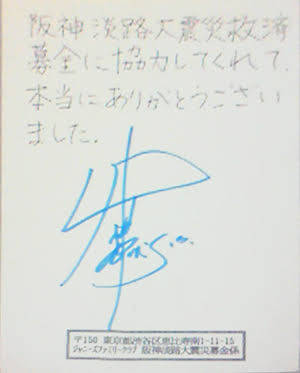 阪神淡路大震災救済
募金に協力してくれて、
本当にありがとうござい
ました。
〒150 東京都渋谷区恵比寿南1-11-15
ジャニーズファミリークラブ 阪神淡路大震災募金係